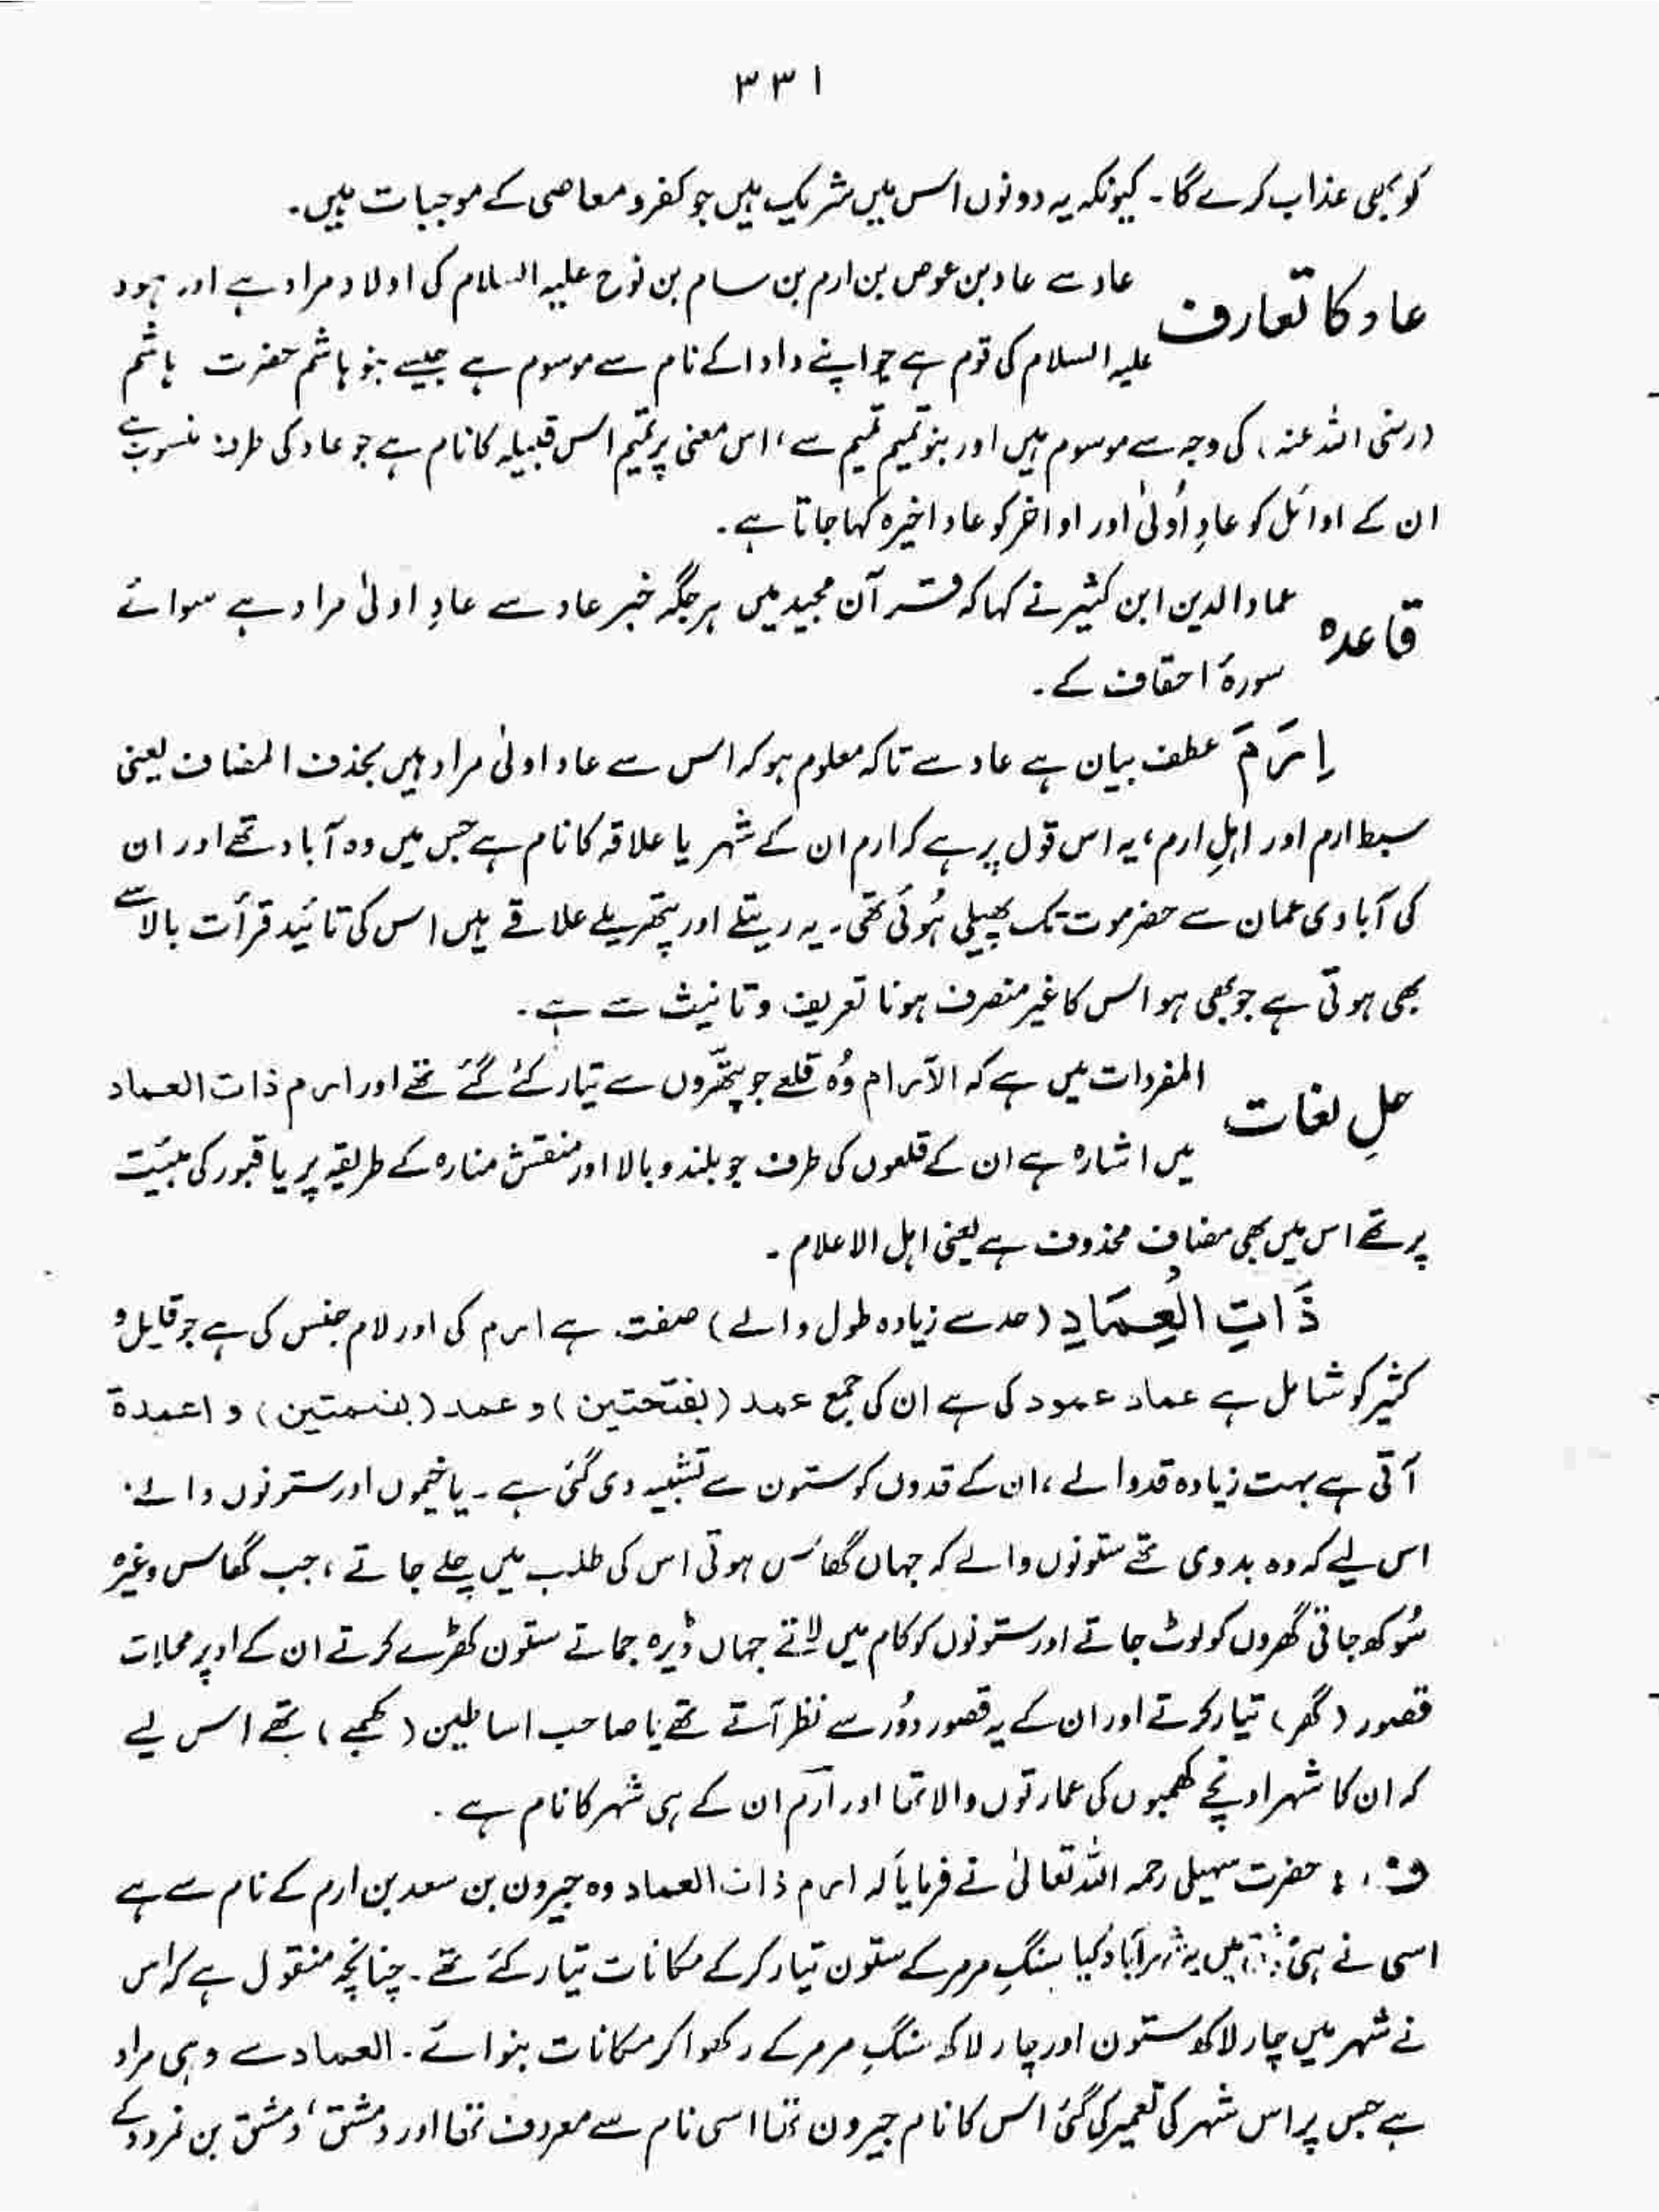 ۳۳۱
کو بھی عذاب کرے گا۔ کیونکہ یہ دونوں اس میں شریک ہیں جو کفر و معاصی کے موجبات ہیں۔
عاد کا تعارف
عاد سے عاد بن عوص بن ارم بن سام بن نوح علیہ السلام کی اولاد مراد ہے اور ہود
علیہ السلام کی قوم ہے جو اپنے دادا کے نام سے موسوم ہے جیسے بنو ہاشم حضرت ہاشم
(رضی اللہ عنہ) کی وجہ سے موسوم ہیں اور بنو تمیم تمیم سے، اس معنی پر تمیم اس قبیلہ کا نام ہے جو عاد کی طرف منسوب ہے
ان کے اوائل کو عادِ اُولیٰ اور اواخر کو عاد اخیرہ کہا جاتا ہے۔
قاعدہ
عماد الدین ابن کثیر نے کہا کہ قرآن مجید میں ہر جگہ خبر عاد سے عادِ اولیٰ مراد ہے سوائے
سورۂ احقاف کے۔
اِرَمَ عطف بیان ہے عاد سے تاکہ معلوم ہو کہ اس سے عاد اولیٰ مراد ہیں بحذف المضاف یعنی
سبط ارم اور اہلِ ارم، یہ اس قول پر ہے کہ ارم ان کے شہر یا علاقہ کا نام ہے جس میں وہ آباد تھے اور ان
کی آبادی عمان سے حضرموت تک پھیلی ہُوئی تھی۔ یہ ریتلے اور پتھریلے علاقے ہیں اس کی تائید قرأت بالا سے
بھی ہوتی ہے جو بھی ہو اس کا غیر منصرف ہونا تعریف و تانیث سے ہے۔
حلِ لغات
المفردات میں ہے کہ الآرام وُہ قلعے جو پتھّروں سے تیار کئے گئے تھے اور ارم ذات العماد
میں اشارہ ہے ان کے قلعوں کی طرف جو بلند و بالا اور منقش منارہ کے طریقہ پر یا قبور کی ہیئت
پر تھے اس میں بھی مضاف محذوف ہے یعنی اہل الاعلام۔
ذَاتِ الْعِمَادِ (حد سے زیادہ طول والے) صفت ہے ارم کی اور لام جنس کی ہے جو قلیل و
کثیر کو شامل ہے عماد عمود کی ہے ان کی جمع عمد (بفتحتین) و عمد (بضمتین) و اعمدۃ
آتی ہے بہت زیادہ قد والے، ان کے قدوں کو ستون سے تشبیہ دی گئی ہے۔ یا خیموں اور ستونوں والے۔
اس لیے کہ وہ بدوی تھے ستونوں والے کہ جہاں گھاس ہوتی اس کی طلب میں چلے جاتے، جب گھاس وغیرہ
سُوکھ جاتی گھروں کو لوٹ جاتے اور ستونوں کو کام میں لاتے جہاں ڈیرہ جماتے ستون کھڑے کرتے ان کے اوپر محلات
قصور (گھر) تیار کرتے اور ان کے یہ قصور دُور سے نظر آتے تھے یا صاحب اساطین (کھمبے) تھے اس لیے
کہ ان کا شہر اونچے کھمبوں کی عمارتوں والا تھا اور ارم ان کے ہی شہر کا نام ہے۔
ف : حضرت سہیلی رحمہ اللہ تعالیٰ نے فرمایا کہ ارم ذات العماد وہ جیرون بن سعد بن ارم کے نام سے ہے
اسی نے ہی میں یہ شہر آباد کیا سنگِ مرمر کے ستون تیار کر کے مکانات تیار کئے تھے۔ چنانچہ منقول ہے کہ اس
نے شہر میں چار لاکھ ستون اور چار لاکھ سنگِ مرمر کے رکھوا کر مکانات بنوائے۔ العماد سے وہی مراد
ہے جس پر اس شہر کی تعمیر کی گئی اس کا نام جیرون تھا اسی نام سے معروف تھا اور دمشق، دمشق بن نمرود کے